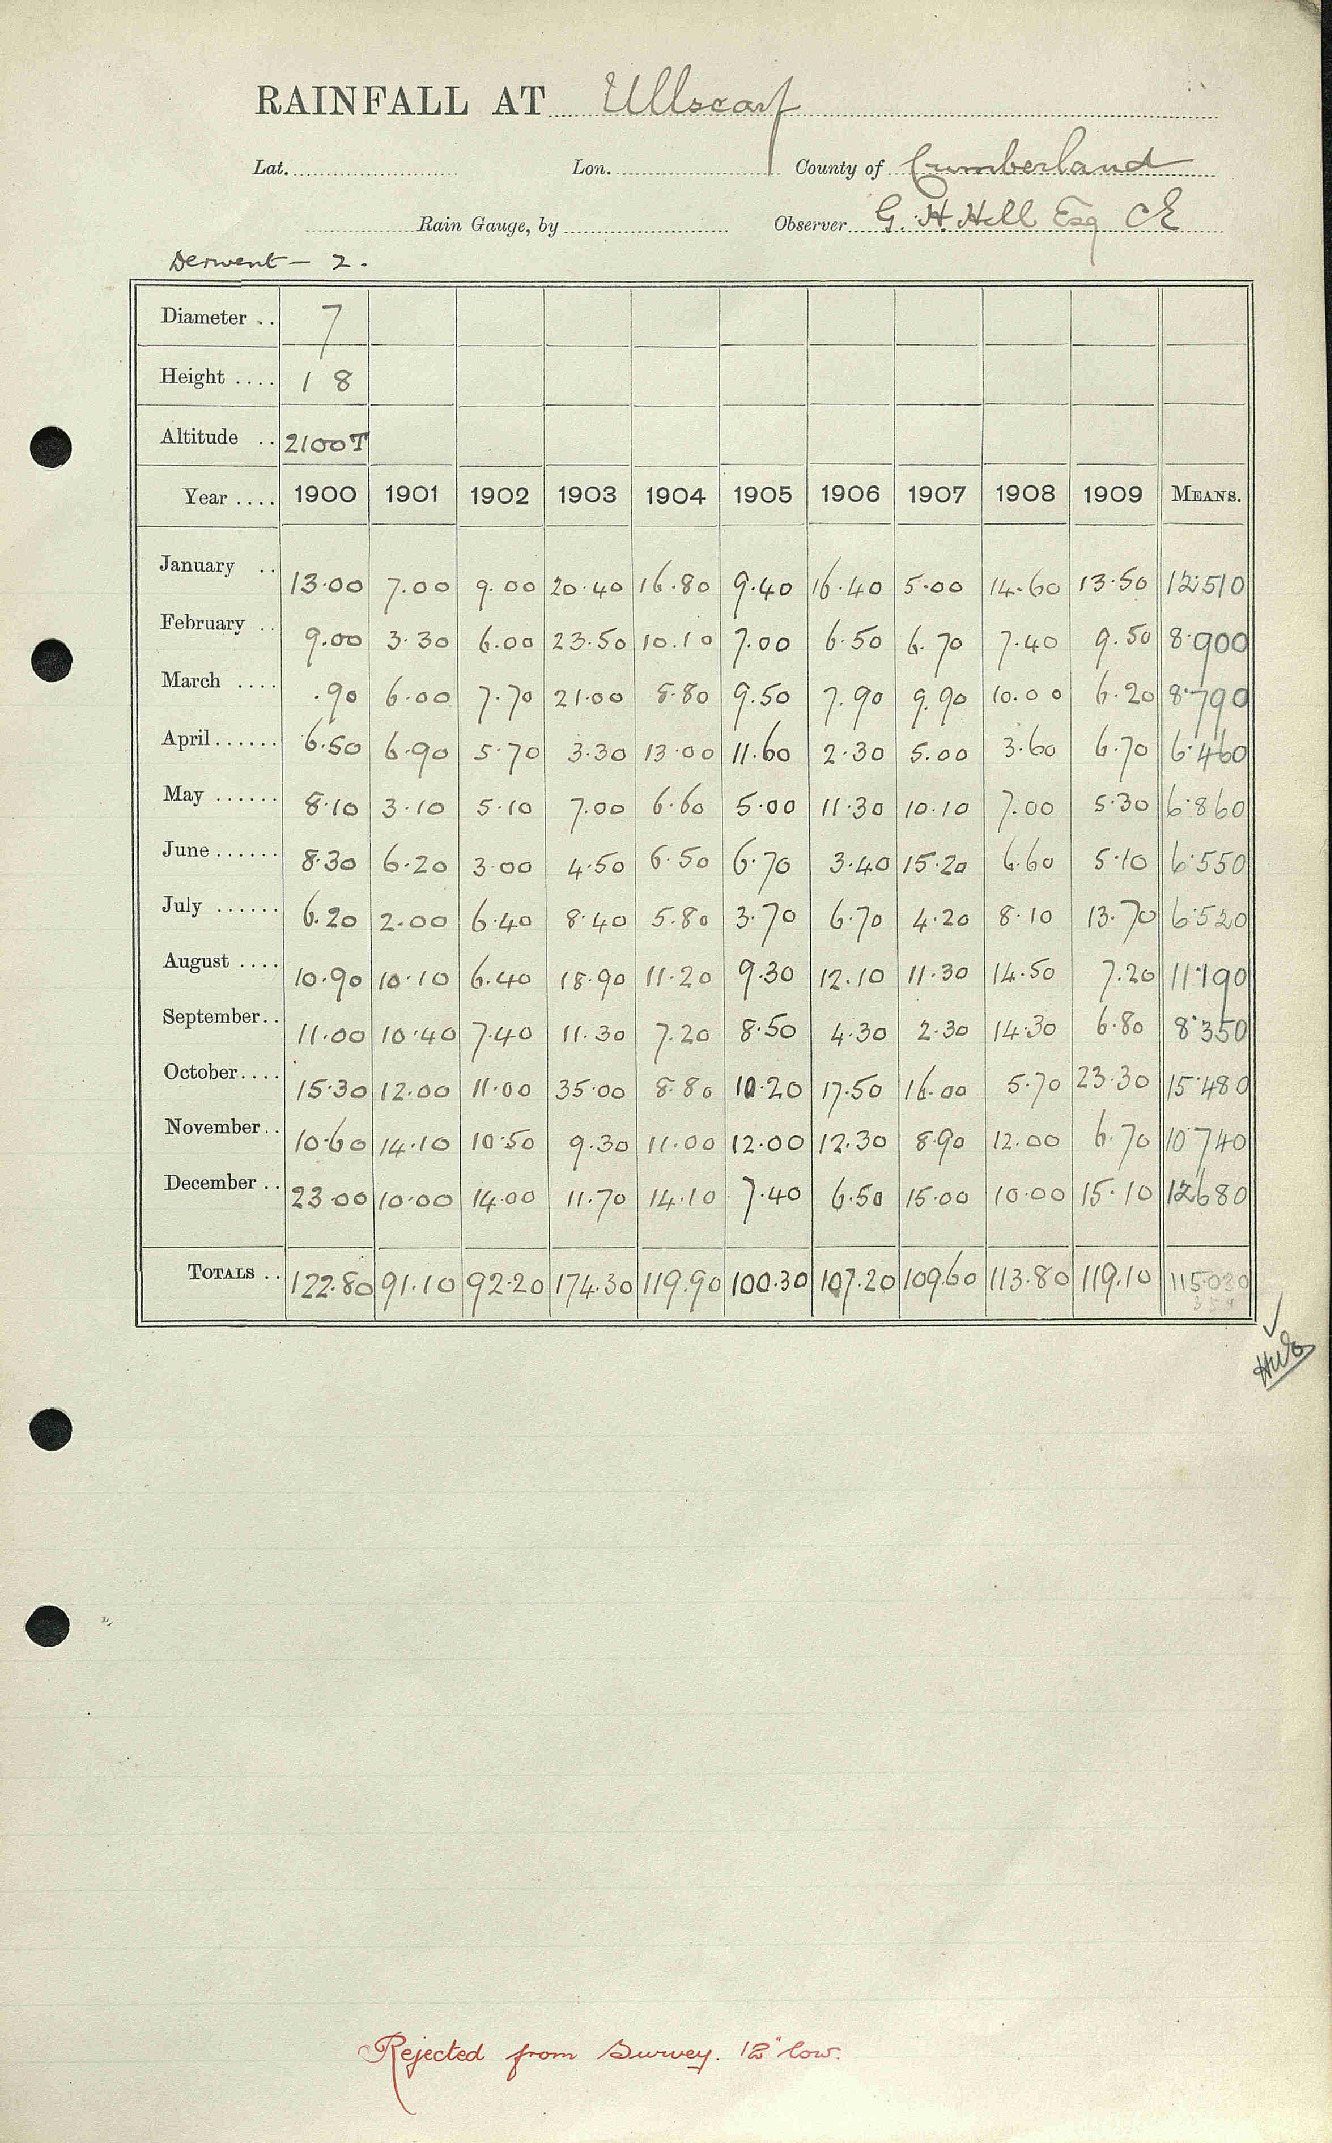 RAINFALL AT Ullscarf
Lat. Lon. County of Cumberland
Rain Gauge, by Observer G. H. Hill Esq CE
Derwent – 2.
Diameter .. 7
Height .... 1 8
Altitude .. 2100T
Year .... 1900 1901 1902 1903 1904 1905 1906 1907 1908 1909 MEANS.
January .. 13.00 7.00 9.00 20.40 16.80 9.40 16.40 5.00 14.60 13.50 12.510
February .. 9.00 3.30 6.00 23.50 10.10 7.00 6.50 6.70 7.40 9.50 8.900
March .... .90 6.00 7.70 21.00 8.80 9.50 7.90 9.90 10.00 6.20 8.790
April...... 6.50 6.90 5.70 3.30 13.00 11.60 2.30 5.00 3.60 6.70 6.460
May ...... 8.10 3.10 5.10 7.00 6.60 5.00 11.30 10.10 7.00 5.30 6.860
June...... 8.30 6.20 3.00 4.50 6.50 6.70 3.40 15.20 6.60 5.10 6.550
July ...... 6.20 2.00 6.40 8.40 5.80 3.70 6.70 4.20 8.10 13.70 6.520
August .... 10.90 10.10 6.40 18.90 11.20 9.30 12.10 11.30 14.50 7.20 11.190
September.. 11.00 10.40 7.40 11.30 7.20 8.50 4.30 2.30 14.30 6.80 8.350
October.... 15.30 12.00 11.00 35.00 8.80 10.20 17.50 16.00 5.70 23.30 15.480
November.. 10.60 14.10 10.50 9.30 11.00 12.00 12.30 8.90 12.00 6.70 10.740
December .. 23.00 10.00 14.00 11.70 14.10 7.40 6.50 15.00 10.00 15.10 12.680
TOTALS .. 122.80 91.10 92.20 174.30 119.90 100.30 107.20 109.60 113.80 119.10 115.030
Rejected from Survey. 12" low.